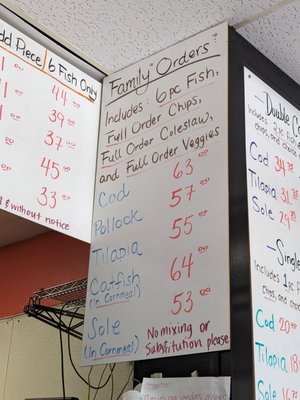 dd Piece
6 Fish Only
44 00
39 00
37 00
45 00
33 00
& without notice
Family Orders:
Includes: 6 pc Fish,
Full Order Chips,
Full Order Coleslaw,
and Full Order Veggies
Cod 63 00
Pollock 57 00
Tilapia 55 00
Catfish 64 00
(In Cornmeal)
Sole 53 00
(In Cornmeal)
No mixing or
Substitution please
Double
Includes: 2 pc
chips and
Cod 34
Tilapia 31
Sole 29
Single
Includes 1 pc
and choi
Cod 20
Tilapia 18
Sole 16